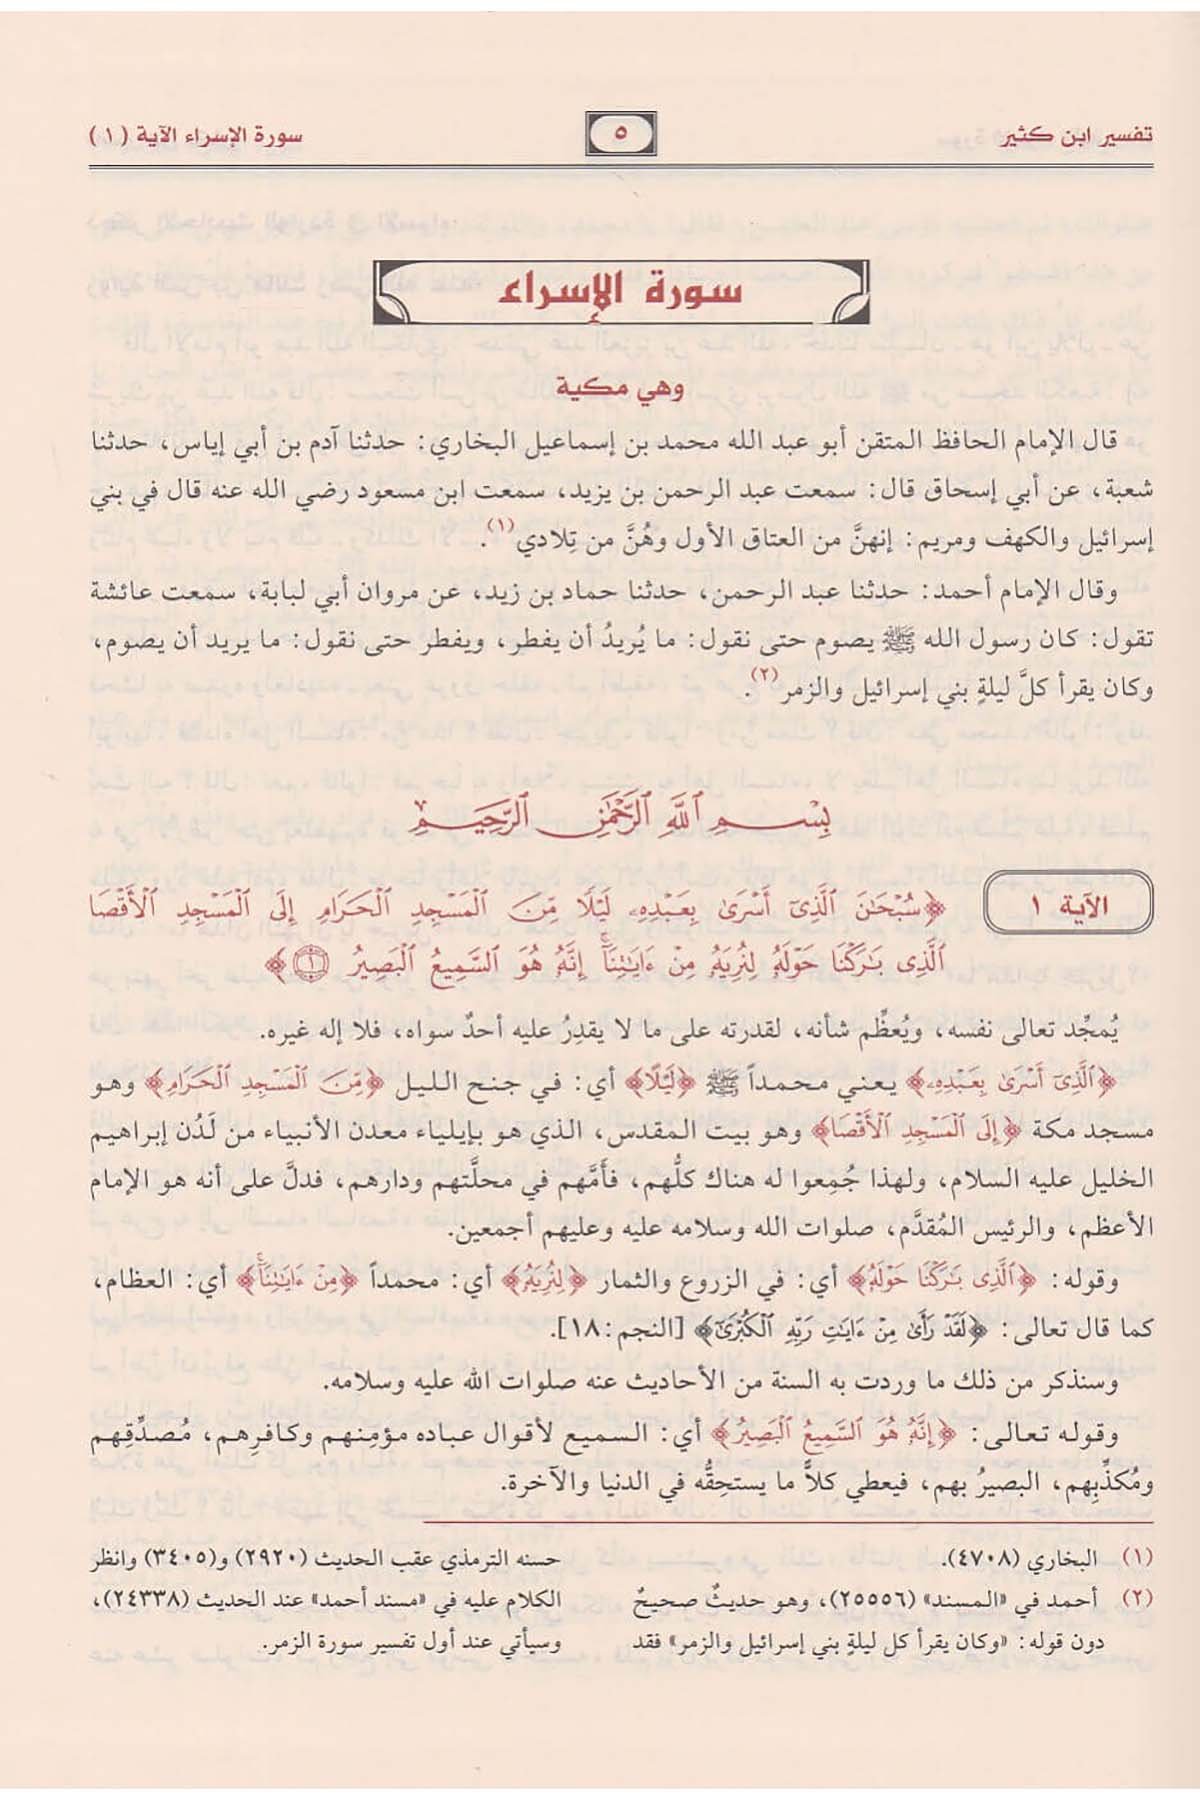 تفسير ابن كثير
٥
سورة الإسراء الآية (١)
سورة الإسراء
وهي مكية
قال الإمام الحافظ المتقن أبو عبد الله محمد بن إسماعيل البخاري: حدثنا آدم بن أبي إياس، حدثنا
شعبة، عن أبي إسحاق قال: سمعت عبد الرحمن بن يزيد، سمعت ابن مسعود رضي الله عنه قال في بني
إسرائيل والكهف ومريم: إنهنَّ من العتاق الأول وهُنَّ من تِلادي(١).
وقال الإمام أحمد: حدثنا عبد الرحمن، حدثنا حماد بن زيد، عن مروان أبي لبابة، سمعت عائشة
تقول: كان رسول الله ﷺ يصوم حتى نقول: ما يُريدُ أن يفطر، ويفطر حتى نقول: ما يريد أن يصوم،
وكان يقرأ كلَّ ليلةٍ بني إسرائيل والزمر(٢).
بِسْمِ ٱللَّهِ ٱلرَّحْمَٰنِ ٱلرَّحِيمِ
الآية ١
﴿سُبْحَٰنَ ٱلَّذِىٓ أَسْرَىٰ بِعَبْدِهِۦ لَيْلًا مِّنَ ٱلْمَسْجِدِ ٱلْحَرَامِ إِلَى ٱلْمَسْجِدِ ٱلْأَقْصَا
ٱلَّذِى بَٰرَكْنَا حَوْلَهُۥ لِنُرِيَهُۥ مِنْ ءَايَٰتِنَآ ۚ إِنَّهُۥ هُوَ ٱلسَّمِيعُ ٱلْبَصِيرُ ١﴾
يُمجِّد تعالى نفسه، ويُعظِّم شأنه، لقدرته على ما لا يقدِرُ عليه أحدٌ سواه، فلا إله غيره.
﴿ٱلَّذِىٓ أَسْرَىٰ بِعَبْدِهِۦ﴾ يعني محمداً ﷺ ﴿لَيْلًا﴾ أي: في جنح الليل ﴿مِّنَ ٱلْمَسْجِدِ ٱلْحَرَامِ﴾ وهو
مسجد مكة ﴿إِلَى ٱلْمَسْجِدِ ٱلْأَقْصَا﴾ وهو بيت المقدس، الذي هو بإيلياء معدن الأنبياء من لَدُن إبراهيم
الخليل عليه السلام، ولهذا جُمِعوا له هناك كلُّهم، فأَمَّهم في محلَّتهم ودارهم، فدلَّ على أنه هو الإمام
الأعظم، والرئيس المُقدَّم، صلوات الله وسلامه عليه وعليهم أجمعين.
وقوله: ﴿ٱلَّذِى بَٰرَكْنَا حَوْلَهُۥ﴾ أي: في الزروع والثمار ﴿لِنُرِيَهُۥ﴾ أي: محمداً ﴿مِنْ ءَايَٰتِنَآ ۚ﴾ أي: العظام،
كما قال تعالى: ﴿لَقَدْ رَأَىٰ مِنْ ءَايَٰتِ رَبِّهِ ٱلْكُبْرَىٰٓ﴾ [النجم: ١٨].
وسنذكر من ذلك ما وردت به السنة من الأحاديث عنه صلوات الله عليه وسلامه.
وقوله تعالى: ﴿إِنَّهُۥ هُوَ ٱلسَّمِيعُ ٱلْبَصِيرُ﴾ أي: السميع لأقوال عباده مؤمِنهم وكافرِهم، مُصدِّقِهم
ومُكذِّبِهم، البصيرُ بهم، فيعطي كلاًّ ما يستحِقُّه في الدنيا والآخرة.
(١) البخاري (٤٧٠٨).
(٢) أحمد في «المسند» (٢٥٥٥٦)، وهو حديثٌ صحيحٌ
دون قوله: «وكان يقرأ كل ليلةٍ بني إسرائيل والزمر» فقد
حسنه الترمذي عقب الحديث (٢٩٢٠) و(٣٤٠٥) وانظر
الكلام عليه في «مسند أحمد» عند الحديث (٢٤٣٣٨)،
وسيأتي عند أول تفسير سورة الزمر.